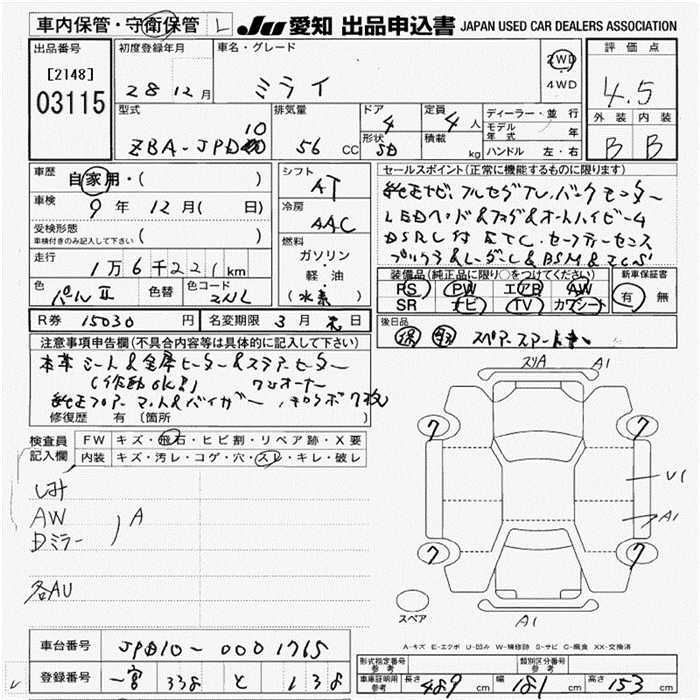 車内保管・守衛保管 L JU 愛知 出品申込書 JAPAN USED CAR DEALERS ASSOCIATION
出品番号 初度登録年月 車名・グレード 2WD 4WD 評価点
[2148] 03115 28 12月 ミライ 4.5
型式 排気量 ドア 4 定員 4人 ディーラー・並行 外装 内装
ZBA-JPD10 56 CC 形状 SD 積載 kg モデル年式 年 B B
ハンドル 左・右
車歴 自家用・( ) シフト AT セールスポイント(正常に機能するものに限ります)
車検 9年 12月( 日) 冷房 AAC 純正ナビ、フルセグTV、バックモニター
受検形態 車検付きのみ記入して下さい ( ) 燃料 LEDヘッド&フォグ&オートハイビーム
走行 1万6千221km ガソリン・軽油 DSRC付ETC、セーフティーセンス
(水素) プリクラ&レーダーC&BSM&ICS
色 パールII 色替 色コード 2NL 装備品(純正品に限り○をつけてください) 新車保証書
PS PW エアB AW 有 無
SR ナビ TV カワシート
R券 15030円 名変期限 3月 末日 後日品
注意事項申告欄(不具合内容等は具体的に記入して下さい) 保 取 スペアースマートキー
本革シート&全席ヒーター&ステアヒーター
(作動OK!) ワンオーナー
純正フロアーマット&バイザー
修復歴 有( )箇所
検査員記入欄 FW キズ・飛石・ヒビ割・リペア跡・X要
内装 キズ・汚レ・コゲ・穴・スレ・キレ・破レ
スリA A1
7 7
AW A
Dミラー
U1
A1
7 7
各AU
スペア
A1
A-キズ E-エクボ U-凹み W-補修跡 S-サビ C-腐食 XX-交換済
車台番号 JPD10-0001765
登録番号 一宮 338 と 138
形式指定番号 参考 類別区分番号 参考
車庫証明用 参考 長さ 489cm 幅 181cm 高さ 153cm